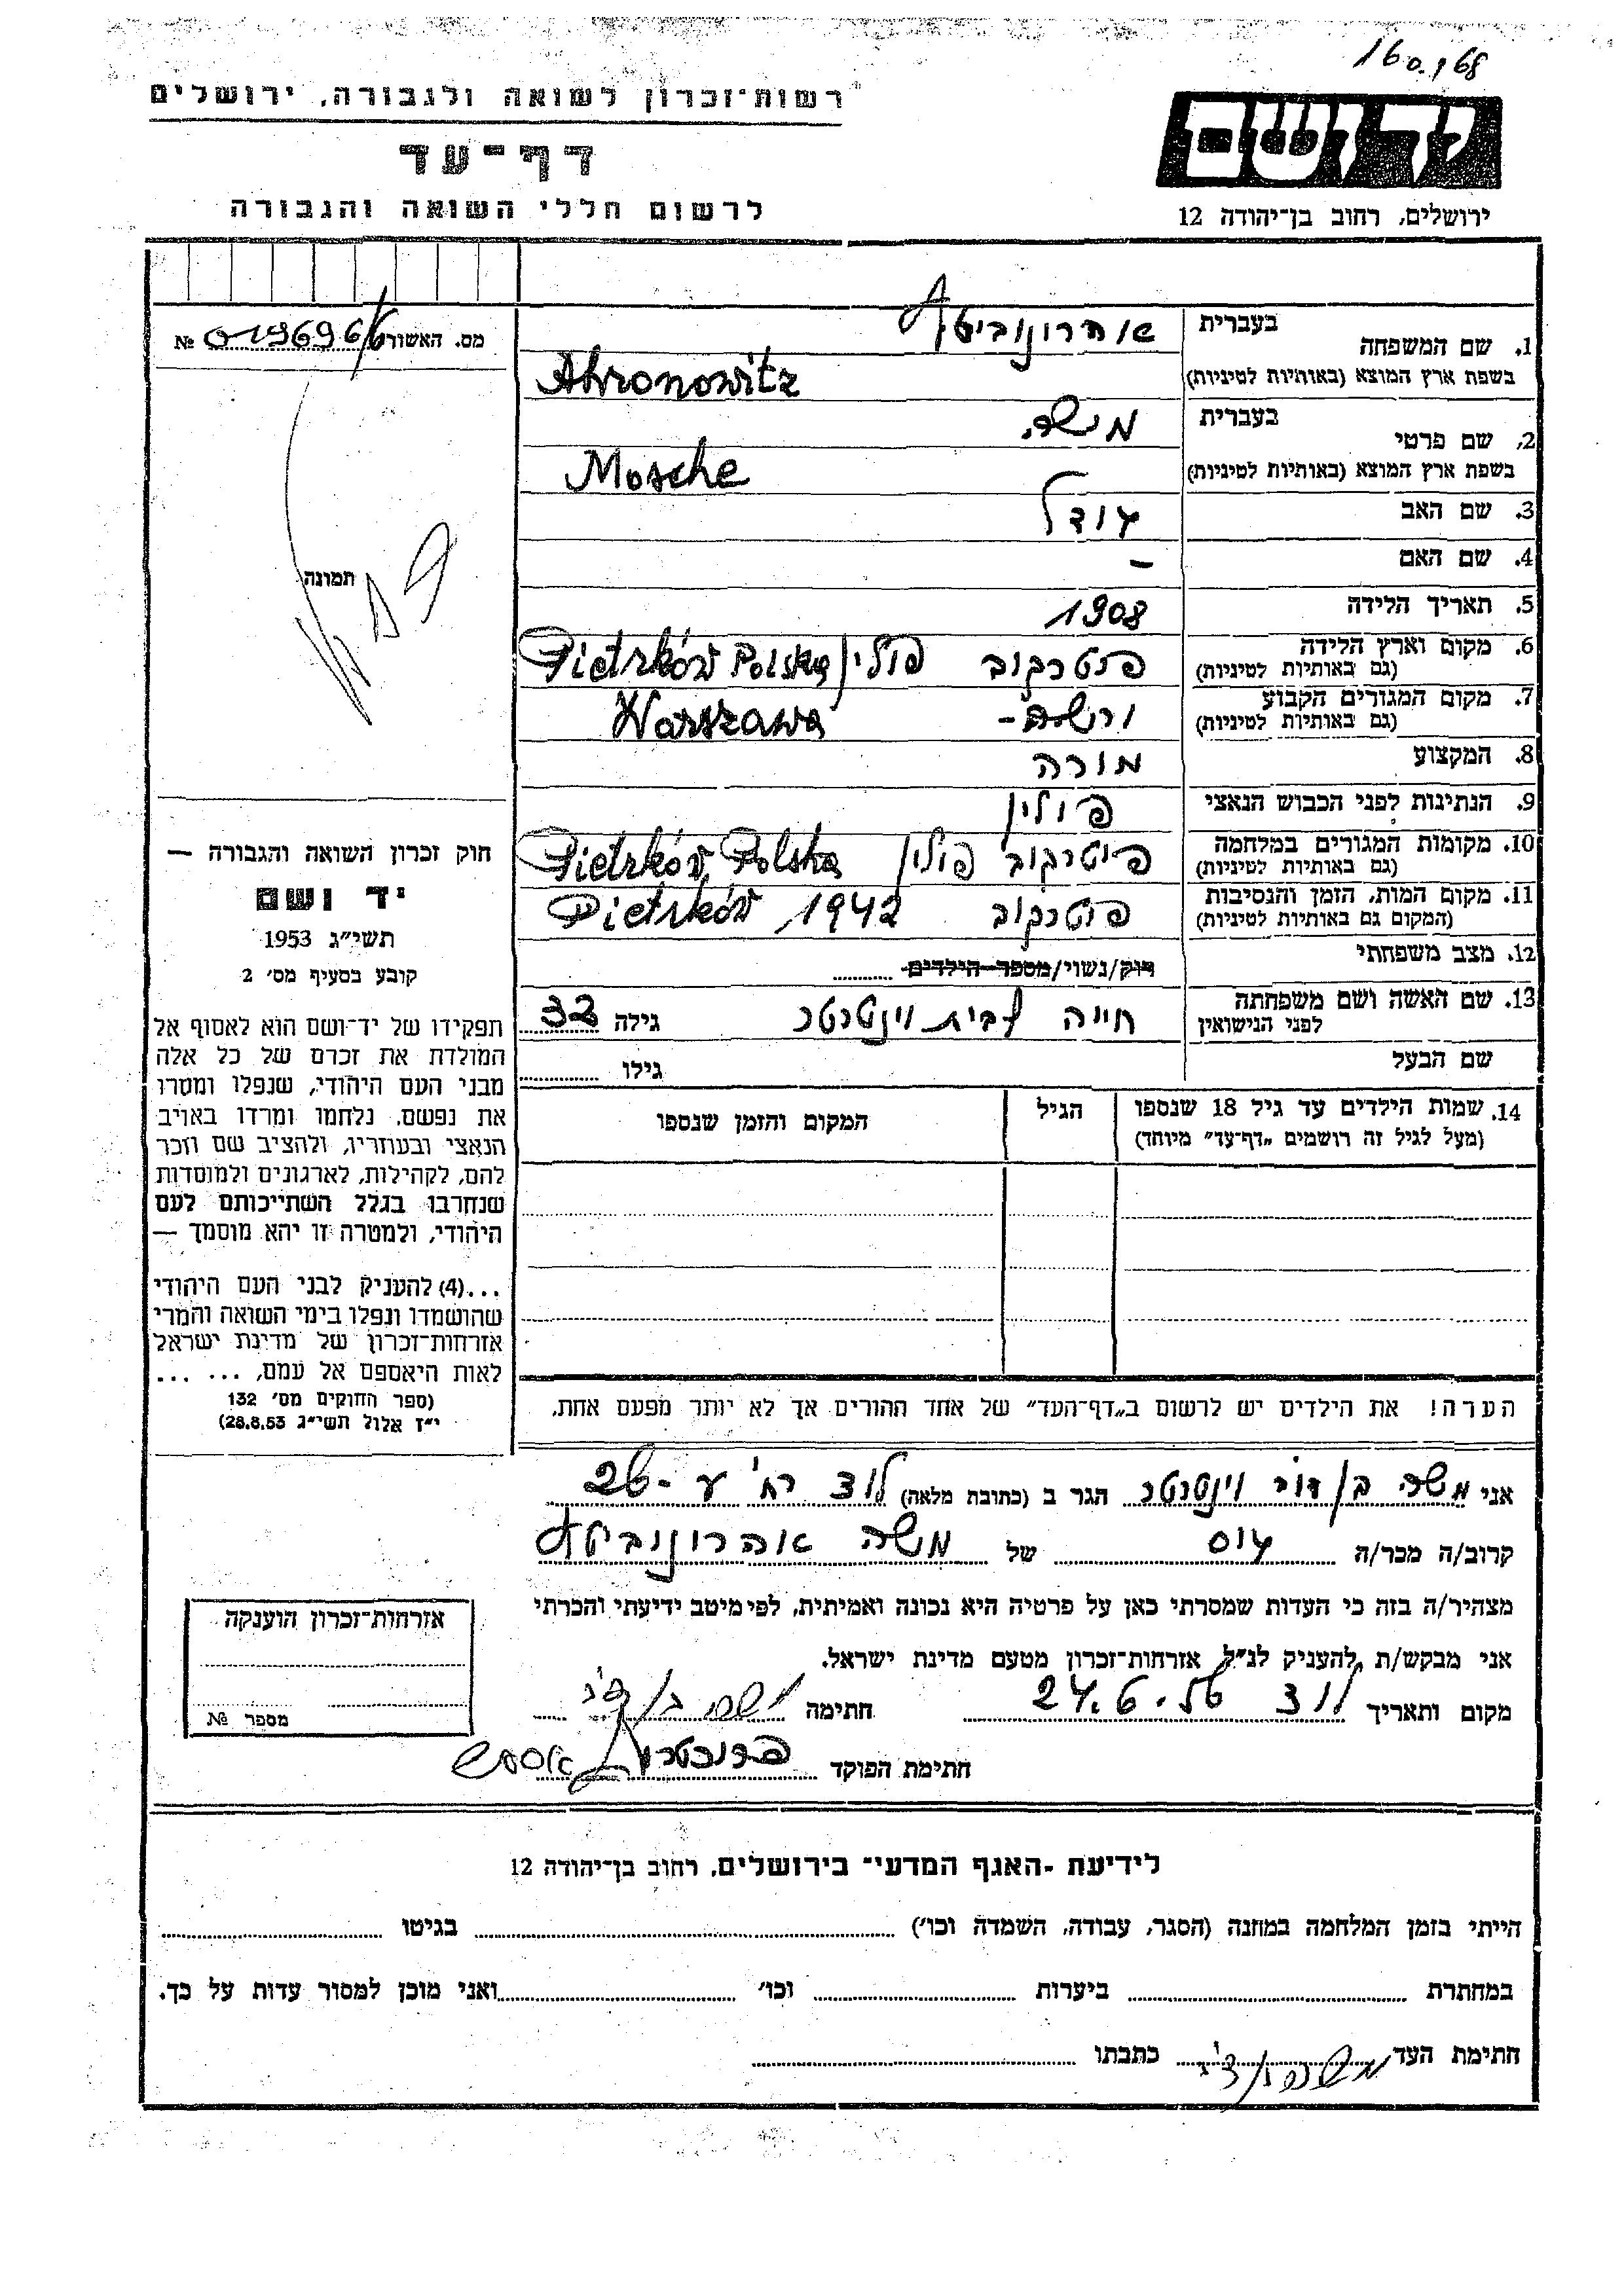 160.168
רשות-זכרון לשואה ולגבורה, ירושלים
דף-עד
לרשום חללי השואה והגבורה
יד ושם
ירושלים, רחוב בן-יהודה 12
מס. האשור 019696/6 №
תמונה
1. שם המשפחה בעברית אהרונוביטץ
בשפת ארץ המוצא (באותיות לטיניות) Ahronowitz
2. שם פרטי בעברית משה
בשפת ארץ המוצא (באותיות לטיניות) Mosche
3. שם האב יודל
4. שם האם –
5. תאריך הלידה 1908
6. מקום וארץ הלידה (גם באותיות לטיניות) פטרקוב פולין Pietrków Polska
7. מקום המגורים הקבוע (גם באותיות לטיניות) ורשה – Warszawa
8. המקצוע מורה
9. הנתינות לפני הכבוש הנאצי פולין
10. מקומות המגורים במלחמה (גם באותיות לטיניות) פיטרקוב פולין Pietrków, Polska
11. מקום המות, הזמן והנסיבות (המקום גם באותיות לטיניות) פטרקוב Pietrków 1942
12. מצב משפחתי רוק/נשוי/מספר הילדים
13. שם האשה ושם משפחתה לפני הנישואין חייה לבית וינטרטר גילה 32
שם הבעל גילו
14. שמות הילדים עד גיל 18 שנספו הגיל המקום והזמן שנספו
(מעל לגיל זה רושמים "דף-עד" מיוחד)
הערה! את הילדים יש לרשום ב"דף-העד" של אחד ההורים אך לא יותר מפעם אחת.
חוק זכרון השואה והגבורה —
יד ושם
תשי"ג 1953
קובע בסעיף מס' 2
תפקידו של יד-ושם הוא לאסוף אל
המולדת את זכרם של כל אלה
מבני העם היהודי, שנפלו ומסרו
את נפשם, נלחמו ומרדו באויב
הנאצי ובעוזריו, ולהציב שם וזכר
להם, לקהילות, לארגונים ולמוסדות
שנחרבו בגלל השתייכותם לעם
היהודי, ולמטרה זו יהא מוסמך —
...(4) להעניק לבני העם היהודי
שהושמדו ונפלו בימי השואה והמרי
אזרחות-זכרון של מדינת ישראל
לאות היאספם אל עמם, ... ...
(ספר החוקים מס' 132
י"ז אלול תשי"ג 28.8.53)
אני משה בן דוד וינטרטר הגר ב (כתובת מלאה) לוד רח' ע -26
קרוב/ה מכר/ה גיס של משה אהרונוביטץ
מצהיר/ה בזה כי העדות שמסרתי כאן על פרטיה היא נכונה ואמיתית, לפי מיטב ידיעתי והכרתי
אני מבקש/ת להעניק לנ"ל אזרחות-זכרון מטעם מדינת ישראל.
מקום ותאריך לוד 24.6.56 חתימה
חתימת הפוקד
אזרחות-זכרון הוענקה
מספר №
לידיעת -האגף המדעי- בירושלים, רחוב בן-יהודה 12
הייתי בזמן המלחמה במחנה (הסגר, עבודה, השמדה וכו') בגיטו
במחתרת ביערות וכו' ואני מוכן למסור עדות על כך.
חתימת העד כתבתו